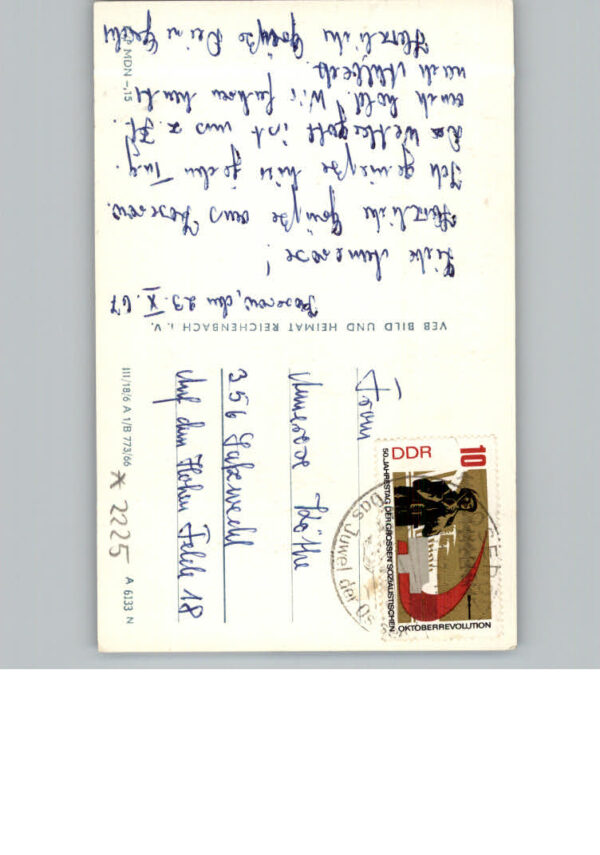 Koserow, den 23.X.67
Liebe Annerose!
Herzliche Grüße aus Koserow.
Ich genieße hier jeden Tag.
Der Wettergott ist uns z. Zt.
auch hold. Wir fahren heute
nach Ahlbeck.
Herzliche Grüße Deine
MDN -,15
VEB BILD UND HEIMAT REICHENBACH i. V.
III/18/6 A 1/B 773/66
* 2225
A 6133 N
Frau
Annerose Köthe
356 Salzwedel
Auf dem Hohen Felde 18
DDR
10
50. JAHRESTAG DER GROSSEN SOZIALISTISCHEN
OKTOBERREVOLUTION
Das Juwel der